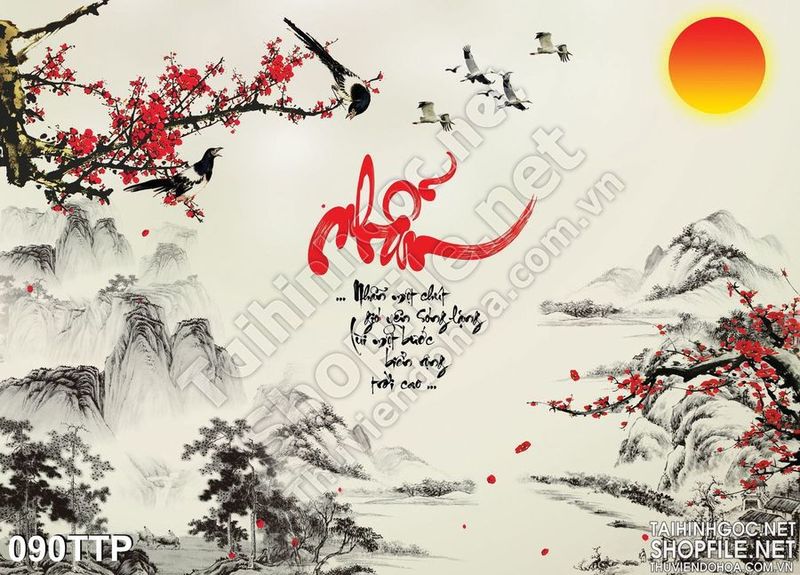 Nhẫn
... Nhẫn một chút
gió yên sóng lặng
lùi một bước
biển rộng
trời cao ...
Taihinhgoc.net
Shopfile.net
Thuviendohoa.com.vn
090TTP
TAIHINHGOC.NET
SHOPFILE.NET
THUVIENDOHOA.COM.VN